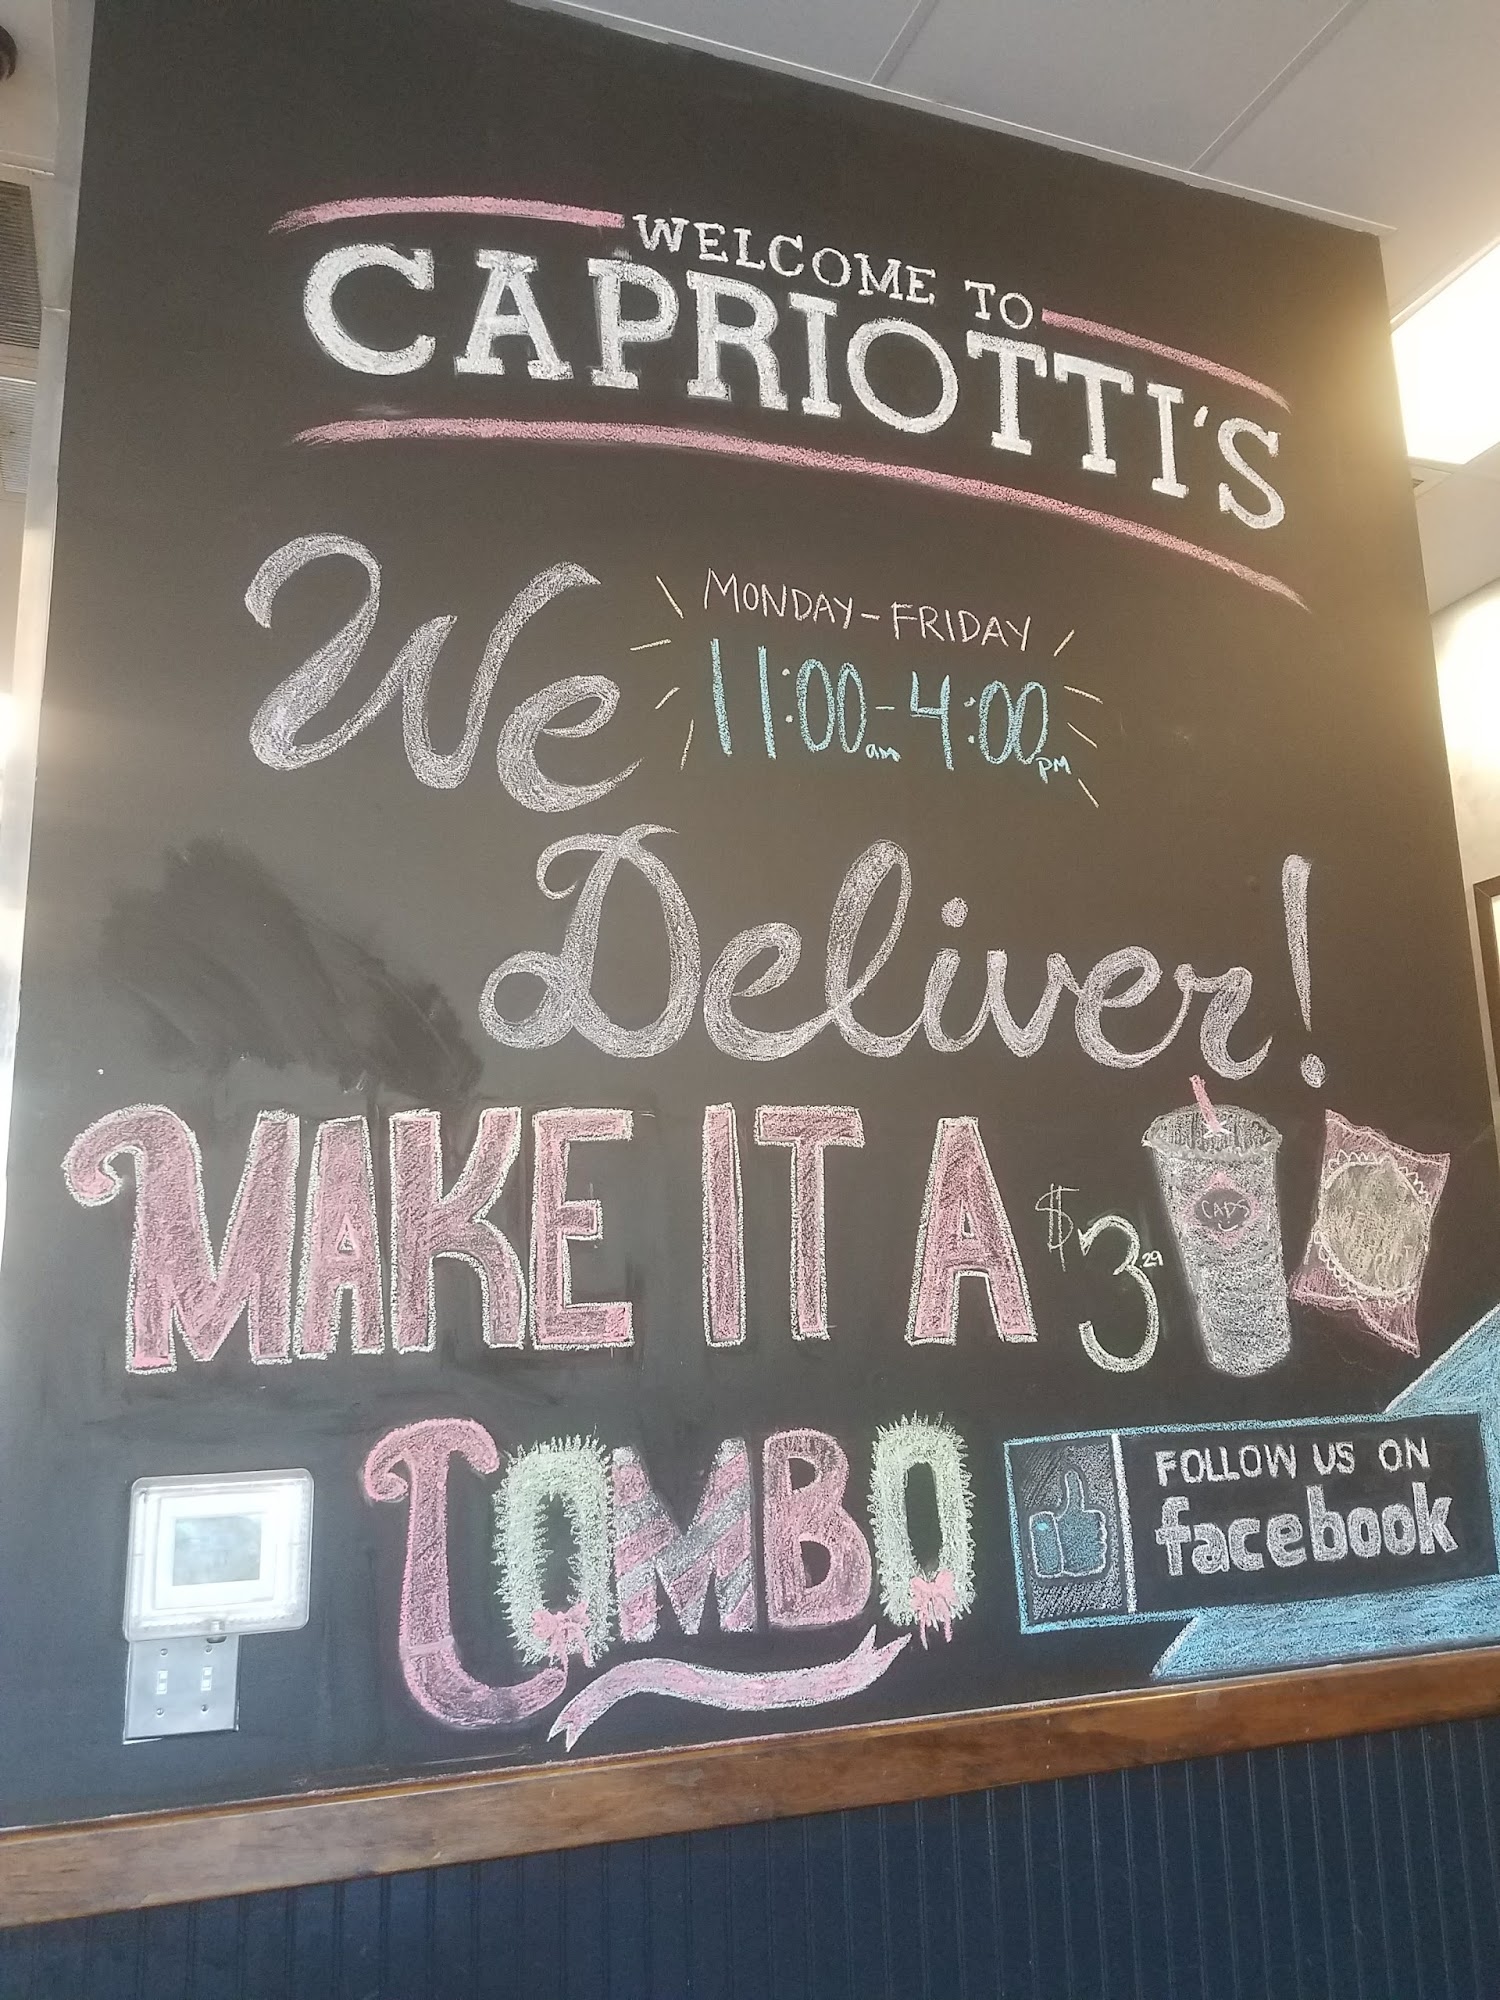 WELCOME TO
CAPRIOTTI'S
We
MONDAY-FRIDAY
11:00am-4:00PM
Deliver!
MAKE IT A
$3.29
CAPS
COMBO
FOLLOW US ON
facebook